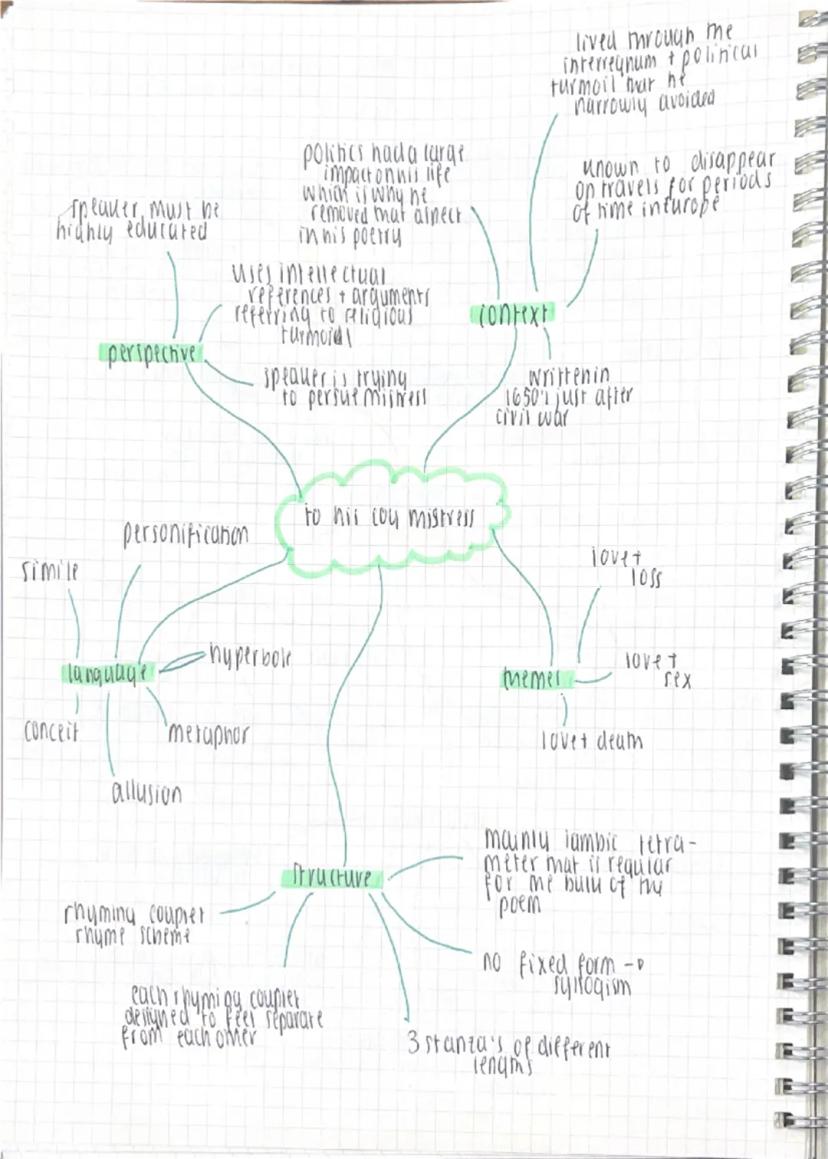 lived through the
interregnum + political
turmoil that he
narrowly avoided
politics had a large
impact on his life
which is why he
removed that aspect
in his poetry
known to disappear
on travels for periods
of time in europe
context
written in
1650's just after
civil war
speaker must be
highly educated
uses intellectual
references + arguments
referring to religious
turmoil
perspective
speaker is trying
to persue mistress
to his coy mistress
personification
simile
language
hyperbole
conceit
metaphor
allusion
love +
loss
themes
love +
sex
love + death
structure
mainly iambic tetra-
meter that is regular
for the bulk of the
poem
rhyming couplet
rhyme scheme
no fixed form →
syllogism
each rhyming couplet
designed to feel separate
from each other
3 stanza's of different
lengths